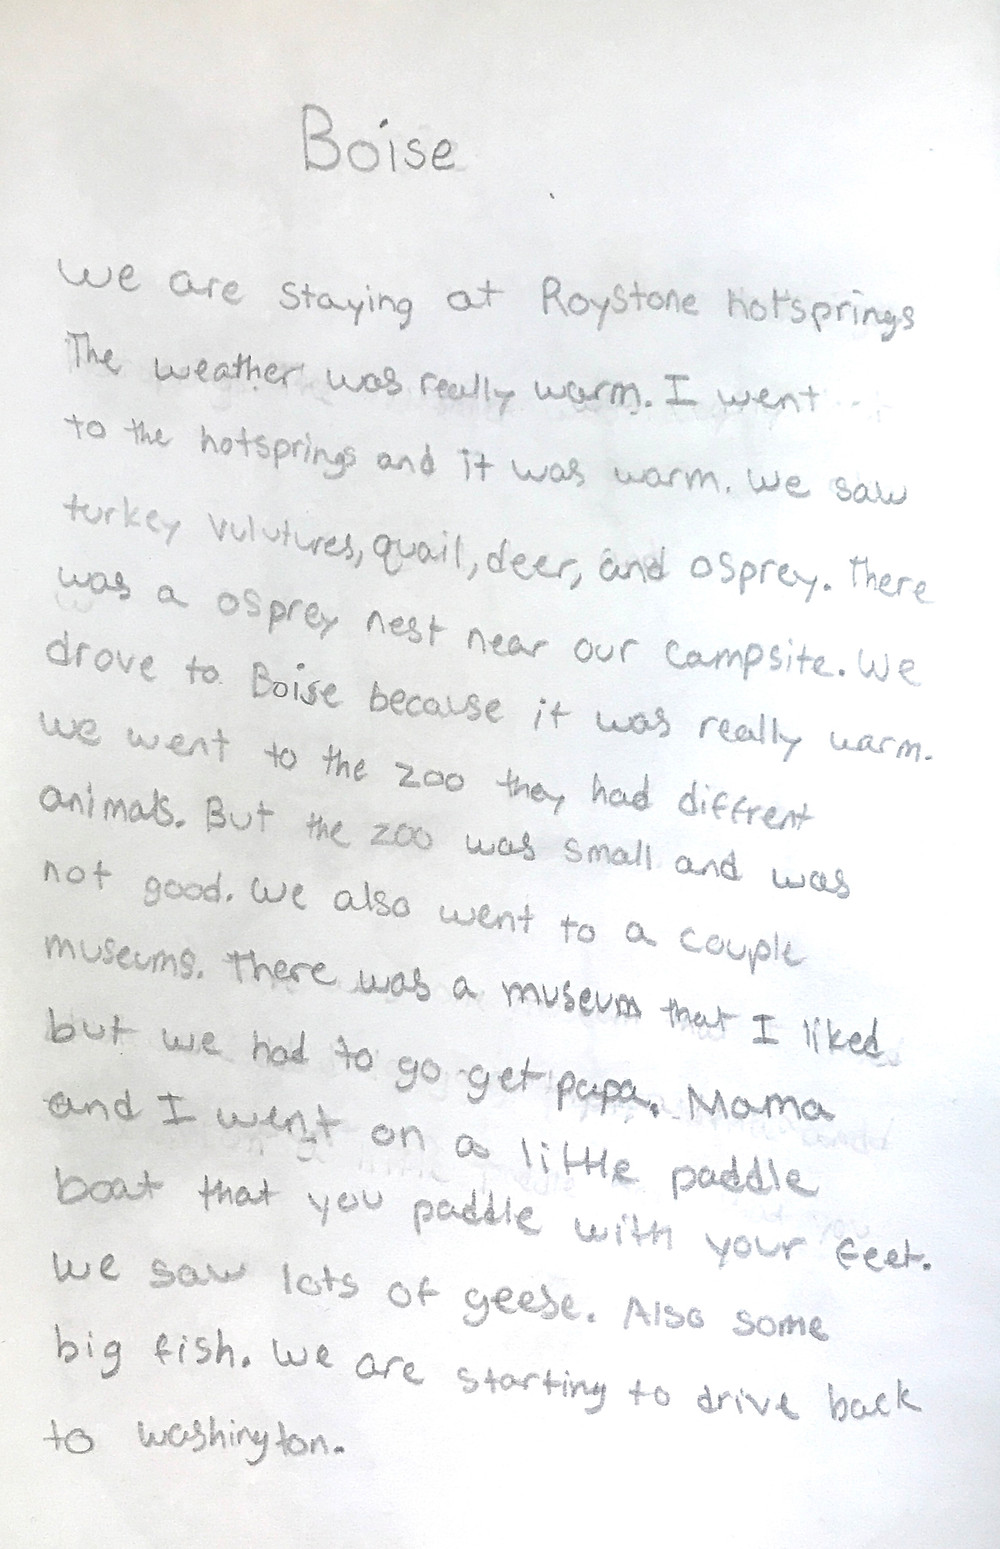 Boise
We are staying at Roystone hotsprings
The weather was really warm. I went
to the hotsprings and it was warm. We saw
turkey vulutures, quail, deer, and osprey. There
was a osprey nest near our campsite. We
drove to Boise because it was really warm.
We went to the zoo they had diffrent
animals. But the zoo was small and was
not good. We also went to a couple
museums. There was a museum that I liked
but we had to go get papa. Mama
and I went on a little paddle
boat that you paddle with your feet.
We saw lots of geese. Also some
big fish. We are starting to drive back
to washington.